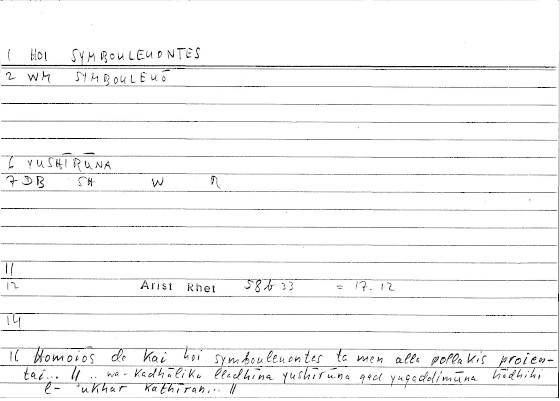 1 HOI SYMBOULEUONTES
2 WM SYMBOULEUŌ
6 YUSHĪRŪNA
7 DB SH W R
11
12 Arist Rhet 58b 33 = 17.12
14
16 Homoiōs de kai hoi symbouleuontes ta men alla pollakis proien-
tai... // .. wa-kadhālika lladhīna yushīrūna qad yuqaddimūna hādhihi
l- ʾukhar kathīran... //